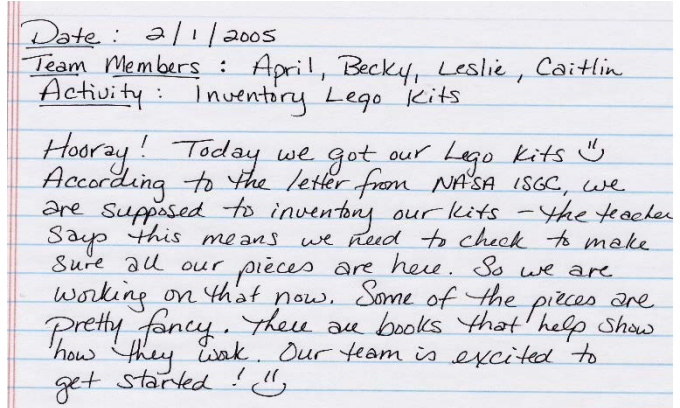 Date: 2/1/2005
Team Members: April, Becky, Leslie, Caitlin
Activity: Inventory Lego Kits
Hooray! Today we got our Lego Kits ü
According to the letter from NASA ISGC, we
are supposed to inventory our kits - the teacher
says this means we need to check to make
sure all our pieces are here. So we are
working on that now. Some of the pieces are
pretty fancy. There are books that help show
how they work. Our team is excited to
get started! ü